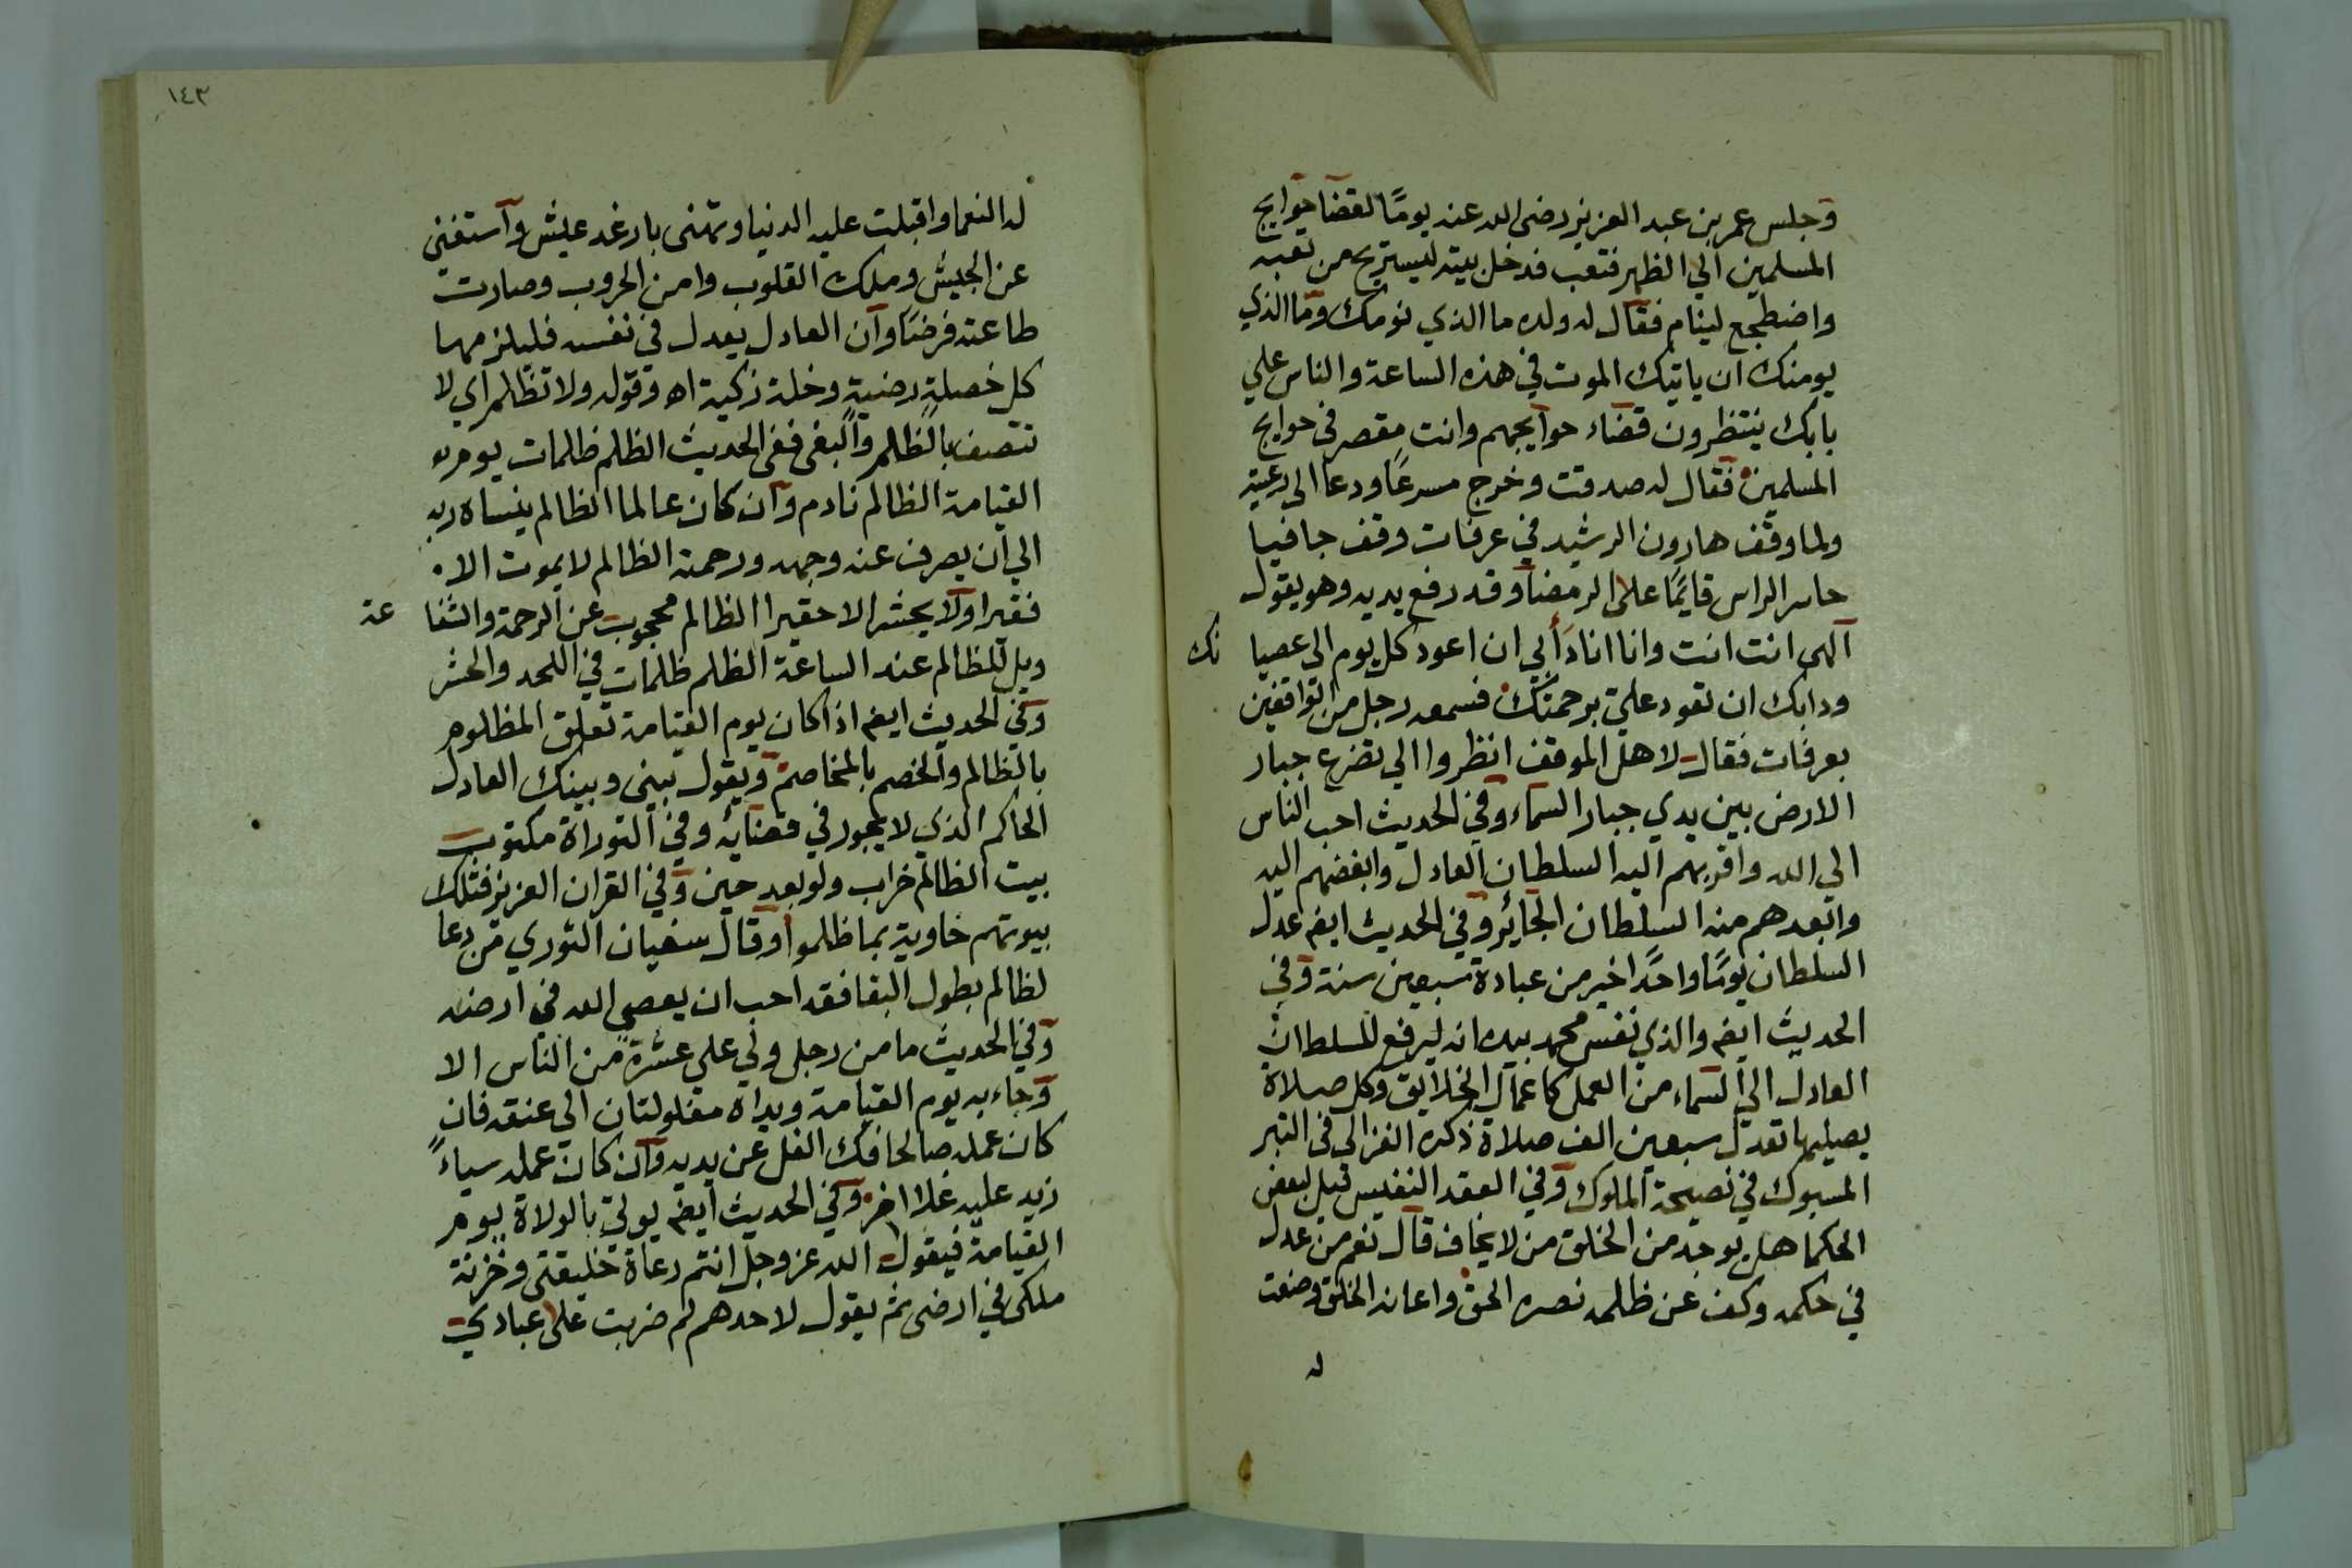 وجلس عمر بن عبد العزيز رضى الله عنه يومًا لقضا حوايج
المسلمين الي الظهر فتعب فدخل بيته ليستريح من تعبه
واضطجع لينام فقال له ولده ما الذي نومك وما الذي
يومنك ان ياتيك الموت في هذه الساعة والناس علي
بابك ينتظرون قضاء حوايجهم وانت مقصر فى حوايج
المسلمين فقال له صدقت وخرج مسرعًا ودعا الى رعيته
ولما وقف هارون الرشيد في عرفات وقف حافيا
حاسر الراس قايمًا على الرمضا وقد رفع يديه وهو يقول
الهى انت انت وانا انا دَأْبي ان اعود كل يوم الى عصيا نك
ودابك ان تعود علي برحمتك فسمعه رجل من الواقفين
بعرفات فقال لاهل الموقف انظروا الي تضرع جبار
الارض بين يدي جبار السماء وفي الحديث احب الناس
الي الله واقربهم اليه السلطان العادل وابغضهم اليه
وابعدهم منه السلطان الجائر وفي الحديث ايضم عدل
السلطان يومًا واحدًا خير من عبادة سبعين سنة وفي
الحديث ايضم والذي نفس محمد بيده انه ليرفع للسلطان
العادل الي السماء من العمل كاعمال الخلايق وكل صلاة
يصليها تعدل سبعين الف صلاة ذكره الغزالى فى التبر
المسبوك في نصيحة الملوك وفي العقد النفيس قيل لبعض
الحكما هل يوجد من الخلق من لا يخاف قال نعم من عدل
في حكمه وكف عن ظلمه نصره الحق واعانه الخلق وصفت
له
١٤٣
له النعما واقبلت عليه الدنيا وتهنى بارغد عيش واستغنى
عن الجيش وملك القلوب وامن الحروب وصارت
طاعته فرضًا وان العادل يعدل في نفسه فليلزمها
كل خصلة رضية وخلة زكية اه وقوله ولا تظلم اي لا
تتصف بالظلم والبغى ففى الحديث الظلم ظلمات يوم
القيامة الظالم نادم وان كان عالما الظالم ينساه ربه
الي ان يصرف عنه وجهه ورحمته الظالم لا يموت الا
فقيرا ولا يحشر الا حقيرا الظالم محجوب عن الرحمة والشفا عة
ويل للظالم عند الساعة الظلم ظلمات في اللحد والحشر
وفي الحديث ايضم اذا كان يوم القيامة تعلق المظلوم
بالظالم والخصم بالمخاصم ويقول بينى وبينك العادل
الحاكم الذي لا يجور في قضائه وفي التوراة مكتوب
بيت الظالم خراب ولو بعد حين وفي القران العزيز فتلك
بيوتهم خاوية بما ظلموا وقال سفيان الثوري من دعا
لظالم بطول البقا فقد احب ان يعصى الله في ارضه
وفي الحديث ما من رجل ولي علي عشرة من الناس الا
وجاء به يوم القيامة ويداه مغلولتان الي عنقه فان
كان عمله صالحا فك الغل عن يديه وان كان عمله سياءً
زيد عليه غلا اخر وفي الحديث ايضم يوتي بالولاة يوم
القيامة فيقول الله عز وجل انتم رعاة خليقتى وخزنة
ملكى في ارضى ثم يقول لاحدهم لم ضربت على عبادي